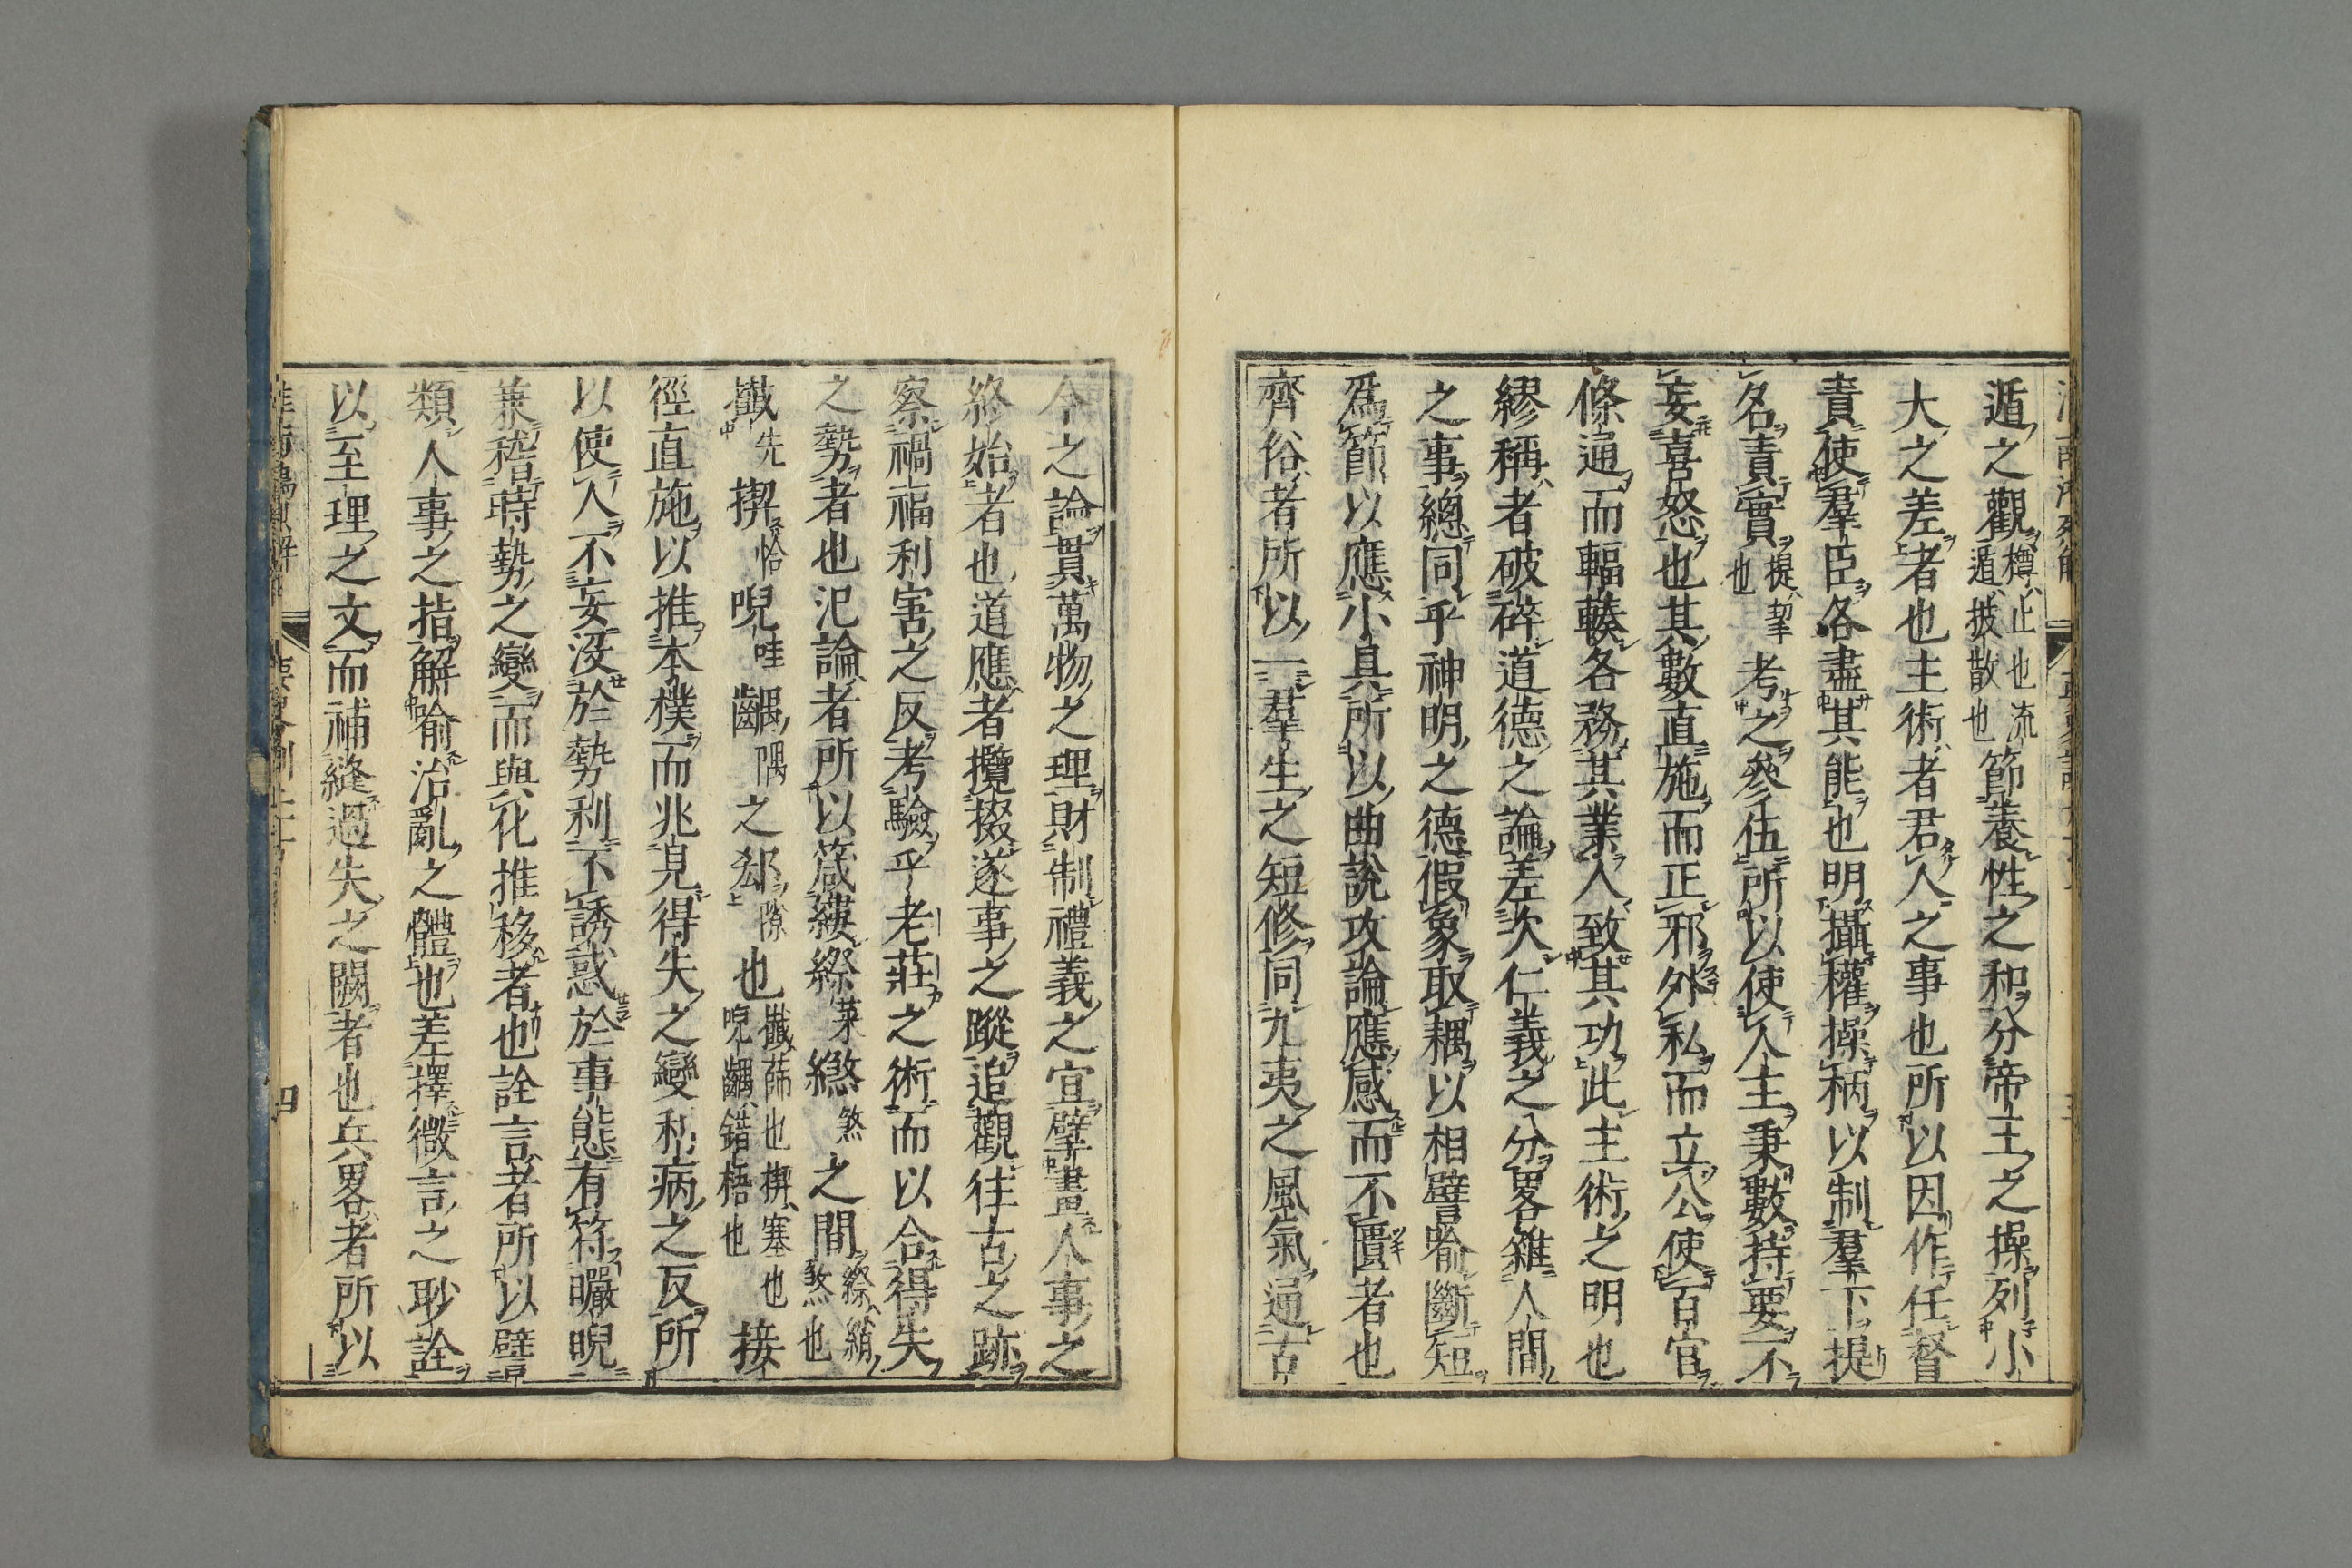 遁之觀樽止也流遁披散也節養性之和分帝王之操列小
大之差者也主術者君人之事也所以因作任督
責使羣臣各盡其能也明攝權操柄以制羣下提
名責實提挈也考之參伍所以使人主秉數持要不
妄喜怒也其數直施而正邪外私而立公使百官
條通而輻輳各務其業人致其功此主術之明也
繆稱者破碎道德之論差次仁義之分畧雜人間
之事總同乎神明之德假象取耦以相譬喻斷短
爲節以應小具所以曲說攻論應感而不匱者也
齊俗者所以一羣生之短修同九夷之風氣通古
今之論貫萬物之理財制禮義之宜擘畫人事之
終始者也道應者攬掇遂事之蹤追觀往古之跡
察禍福利害之反考驗乎老莊之術而以合得失
之勢者也氾論者所以箴縷縩萊繺煞之間縩綃煞也
攕先揳恰唲哇齵隅之郄隙也攕蒒也揳塞也唲齵錯梧也接
徑直施以推本樸而兆見得失之變利病之反所
以使人不妄沒於勢利不誘惑於事態有符曮晲
兼稽時勢之變而與化推移者也詮言者所以譬
類人事之指解喻治亂之體也差擇微言之眇詮
以至理之文而補縫過失之闕者也兵畧者所以
四